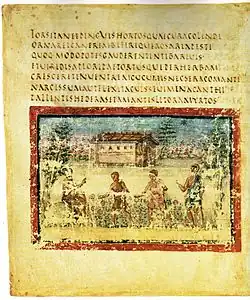 FORSITANETPINGUISHORTOSQUAECURACOLENDI
ORNARETCANEREMBIFERIQUEROSARIAPESTI
QUOQ·MODOPOTISGAUDERENTINTIBARIUIS
ETUIRIDISAPIORIPAETORTUSQUEPERHERBAM
CRESCERETINUENTREMCUCUMISNECSERACOMANTE
NARCISSUMAUTFLEXITACUISSEMUIMENACANTHI
PALLENTISQ·HEDERASETAMANTISLITORAMYRTOS